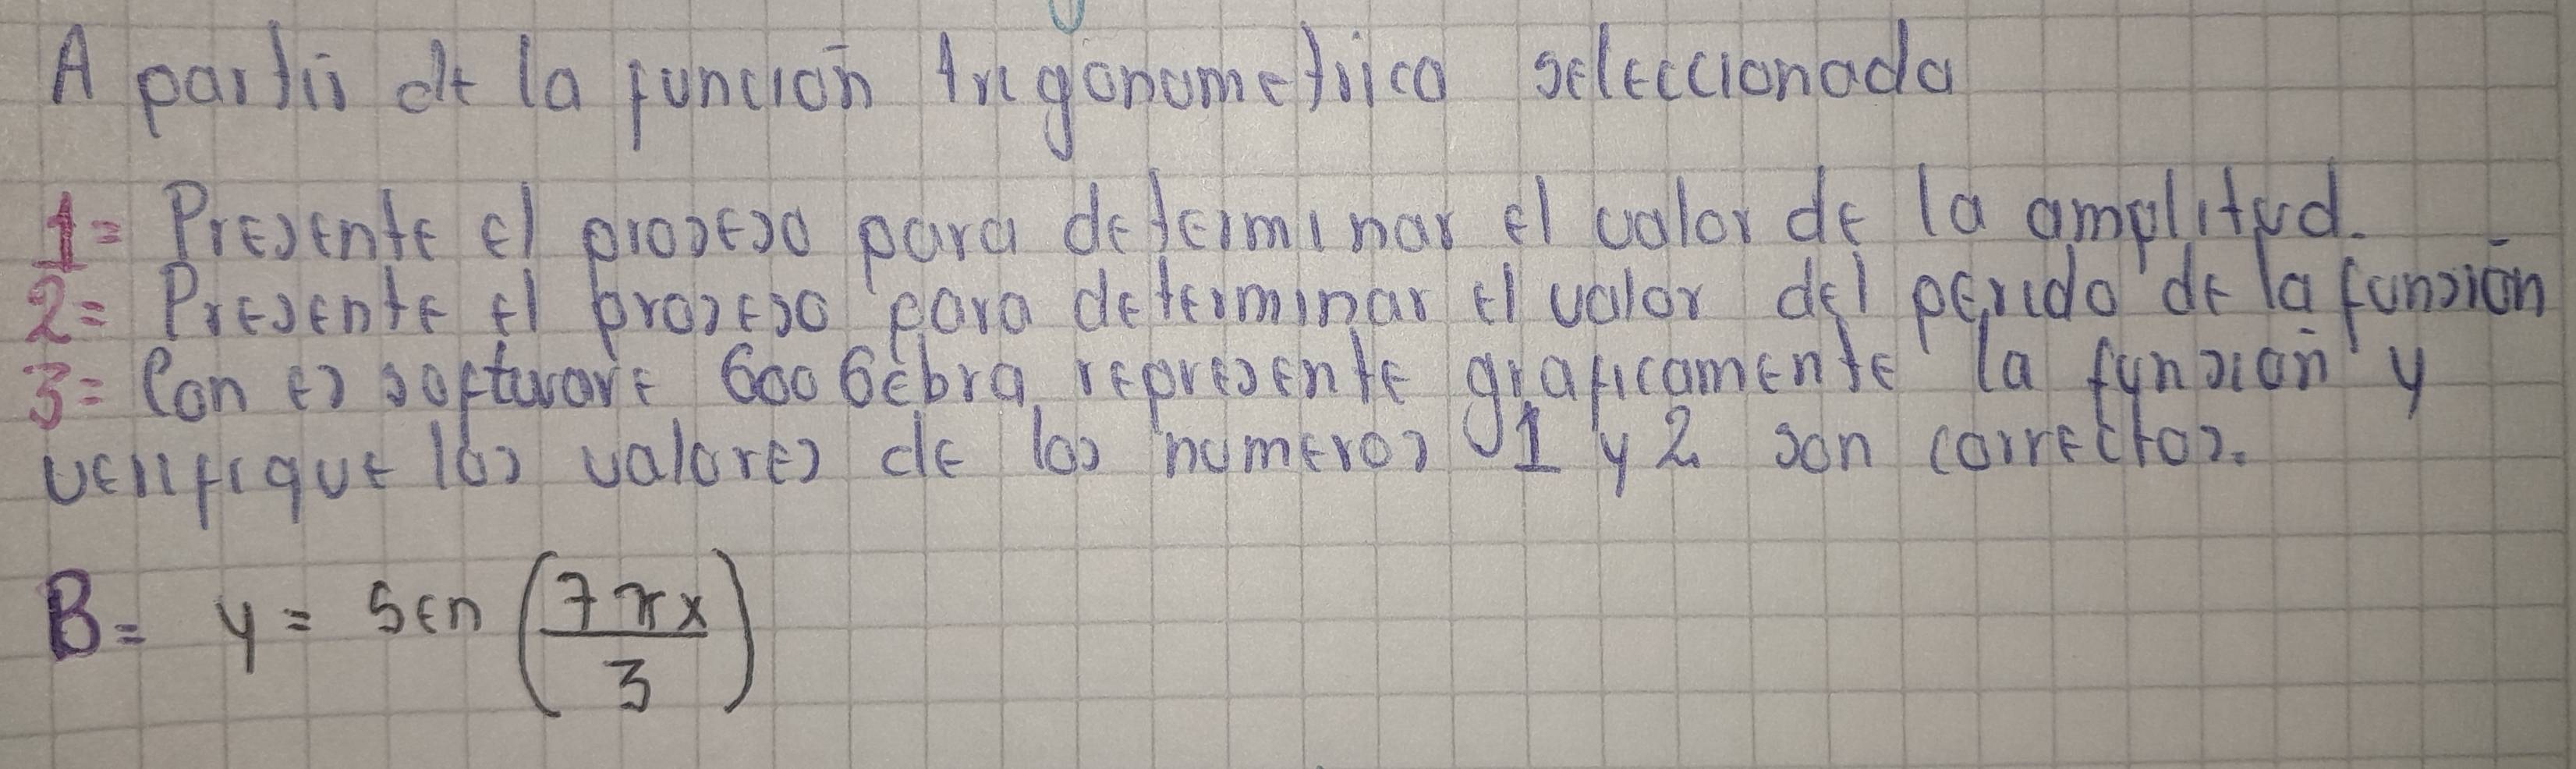 A partir de la función trigonometrica seleccionada
1= Presente el proseso para determinar el valor de la amplitud.
2= Presente el proseso para determinar el valor del perido de la funsión
3= Con es software GooGebra represente graficamente la funsión y
verifique los valores de los numeros 1 y 2 son correctos.
B= y = Sen (7πx/3)